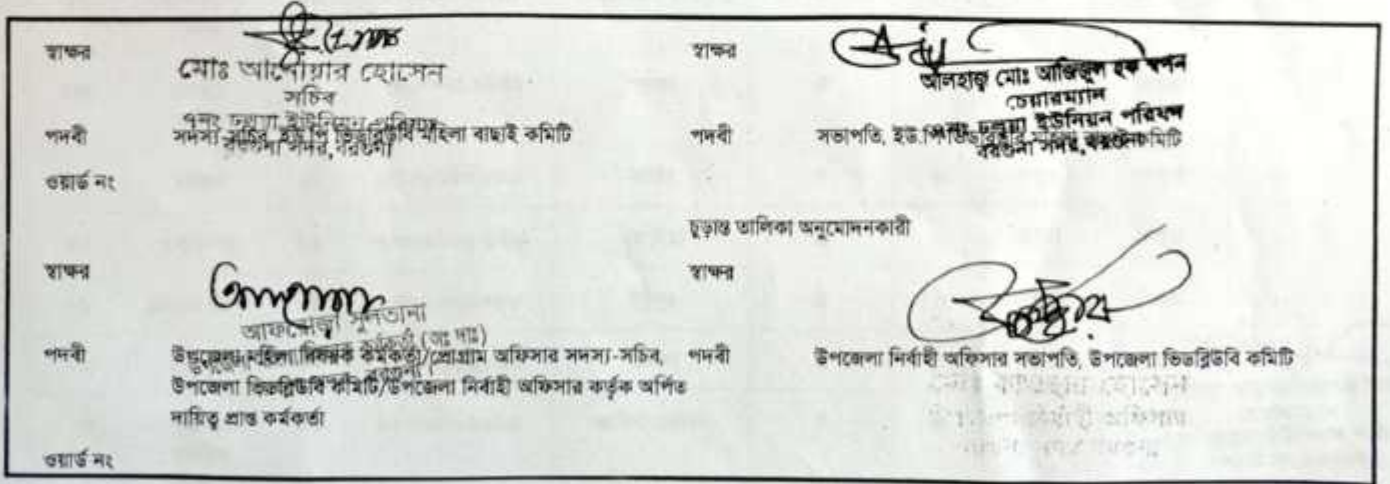 স্বাক্ষর
মোঃ আনোয়ার হোসেন
সচিব
৭নং ঢলুয়া ইউনিয়ন পরিষদ
বরগুনা সদর, বরগুনা
পদবী সদস্য সচিব, ইউ.পি ভিডব্লিউবি মহিলা বাছাই কমিটি
ওয়ার্ড নং
স্বাক্ষর
আলহাজ্ব মোঃ আজিজুল হক স্বপন
চেয়ারম্যান
৭নং ঢলুয়া ইউনিয়ন পরিষদ
বরগুনা সদর, বরগুনা
পদবী সভাপতি, ইউ.পি ভিডব্লিউবি মহিলা বাছাই কমিটি
চূড়ান্ত তালিকা অনুমোদনকারী
স্বাক্ষর
আফরোজা সুলতানা
কর্মকর্তা (অঃ দাঃ)
পদবী উপজেলা মহিলা বিষয়ক কর্মকর্তা/প্রোগ্রাম অফিসার সদস্য-সচিব,
উপজেলা ভিডব্লিউবি কমিটি/উপজেলা নির্বাহী অফিসার কর্তৃক অর্পিত
দায়িত্ব প্রাপ্ত কর্মকর্তা
ওয়ার্ড নং
স্বাক্ষর
পদবী উপজেলা নির্বাহী অফিসার সভাপতি, উপজেলা ভিডব্লিউবি কমিটি
হোসেন
নির্বাহী অফিসার